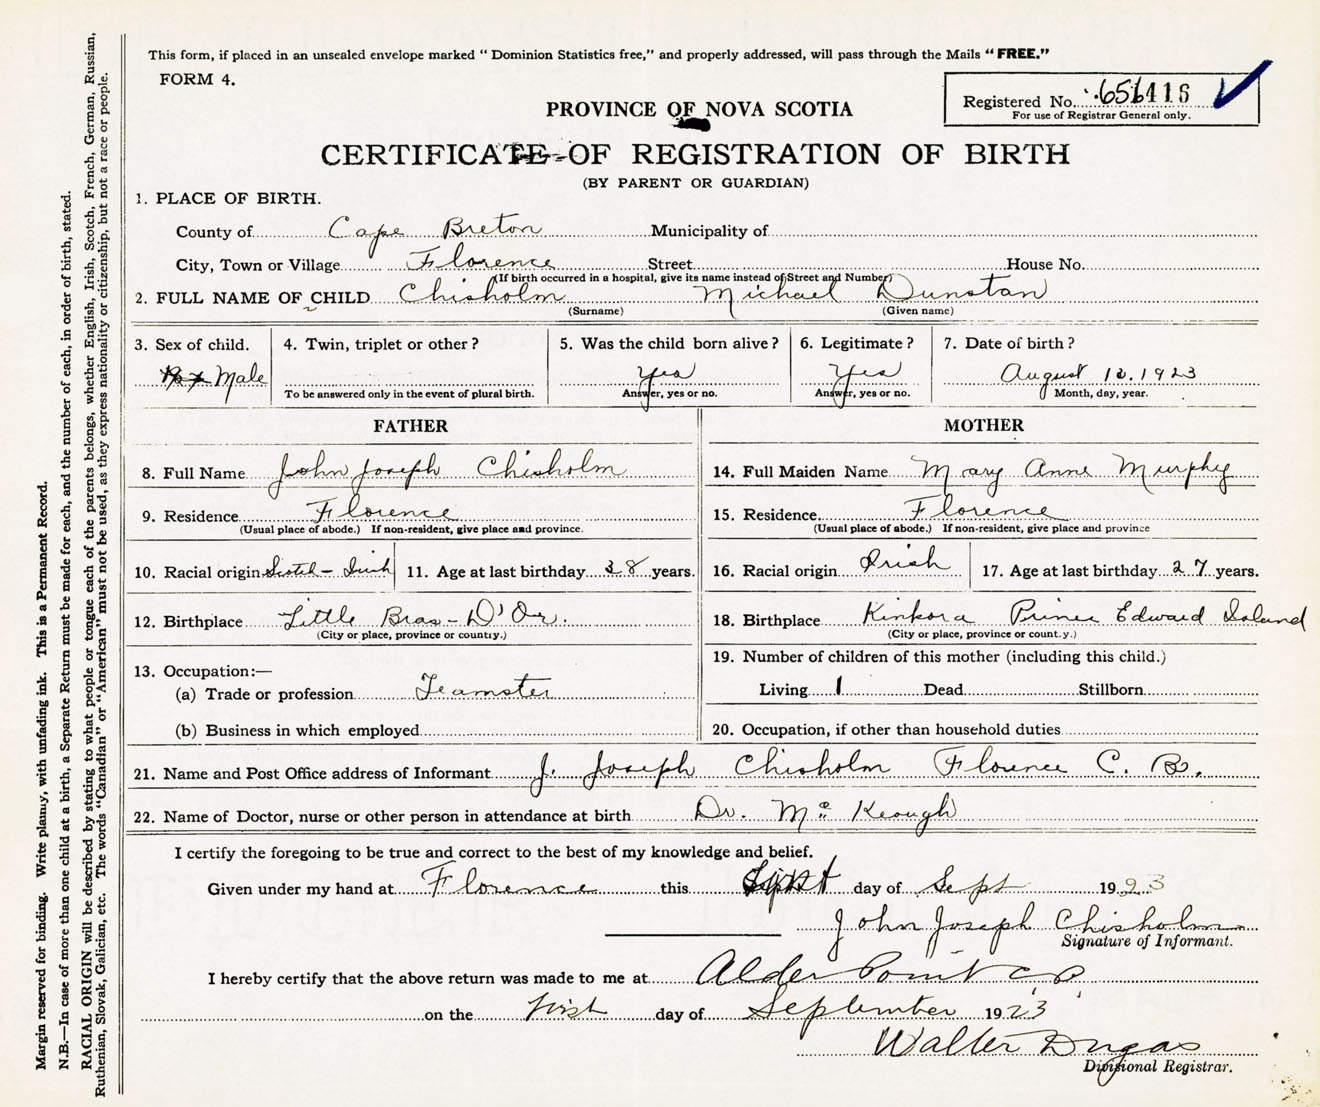 This form, if placed in an unsealed envelope marked “ Dominion Statistics free,” and properly addressed, will pass through the Mails “ FREE.”
FORM 4.
Registered No. 656416
For use of Registrar General only.
PROVINCE OF NOVA SCOTIA
CERTIFICATE OF REGISTRATION OF BIRTH
(BY PARENT OR GUARDIAN)
1. PLACE OF BIRTH.
County of Cape Breton Municipality of
City, Town or Village Florence Street House No.
(If birth occurred in a hospital, give its name instead of Street and Number)
2. FULL NAME OF CHILD Chisholm Michael Dunstan
(Surname) (Given name)
3. Sex of child. 4. Twin, triplet or other? 5. Was the child born alive? 6. Legitimate? 7. Date of birth?
Male Yes Yes August 12. 1923
To be answered only in the event of plural birth. Answer, yes or no. Answer, yes or no. Month, day, year.
FATHER
8. Full Name John Joseph Chisholm
9. Residence Florence
(Usual place of abode.) If non-resident, give place and province.
10. Racial origin Scotch - Irish 11. Age at last birthday 38 years.
12. Birthplace Little Bras - D'Or.
(City or place, province or country.)
13. Occupation:—
(a) Trade or profession Teamster
(b) Business in which employed
MOTHER
14. Full Maiden Name Mary Anne Murphy
15. Residence Florence
(Usual place of abode.) If non-resident, give place and province
16. Racial origin Irish 17. Age at last birthday 27 years.
18. Birthplace Kinkora Prince Edward Island
(City or place, province or count.y.)
19. Number of children of this mother (including this child.)
Living 1 Dead Stillborn
20. Occupation, if other than household duties
21. Name and Post Office address of Informant J. Joseph Chisholm Florence C. B.
22. Name of Doctor, nurse or other person in attendance at birth Dr. Mc Keough
I certify the foregoing to be true and correct to the best of my knowledge and belief.
Given under my hand at Florence this day of Sept 1923
John Joseph Chisholm
Signature of Informant.
I hereby certify that the above return was made to me at Alder Point C B
on the First day of September 1923
Walter Dugas
Divisional Registrar.
Margin reserved for binding. Write plainly, with unfading ink. This is a Permanent Record.
N.B.—In case of more than one child at a birth, a Separate Return must be made for each, and the number of each, in order of birth, stated.
RACIAL ORIGIN will be described by stating to what people or tongue each of the parents belongs, whether English, Irish, Scotch, French, German, Russian,
Ruthenian, Slovak, Galician, etc. The words “Canadian” or “American” must not be used, as they express nationality or citizenship, but not a race or people.